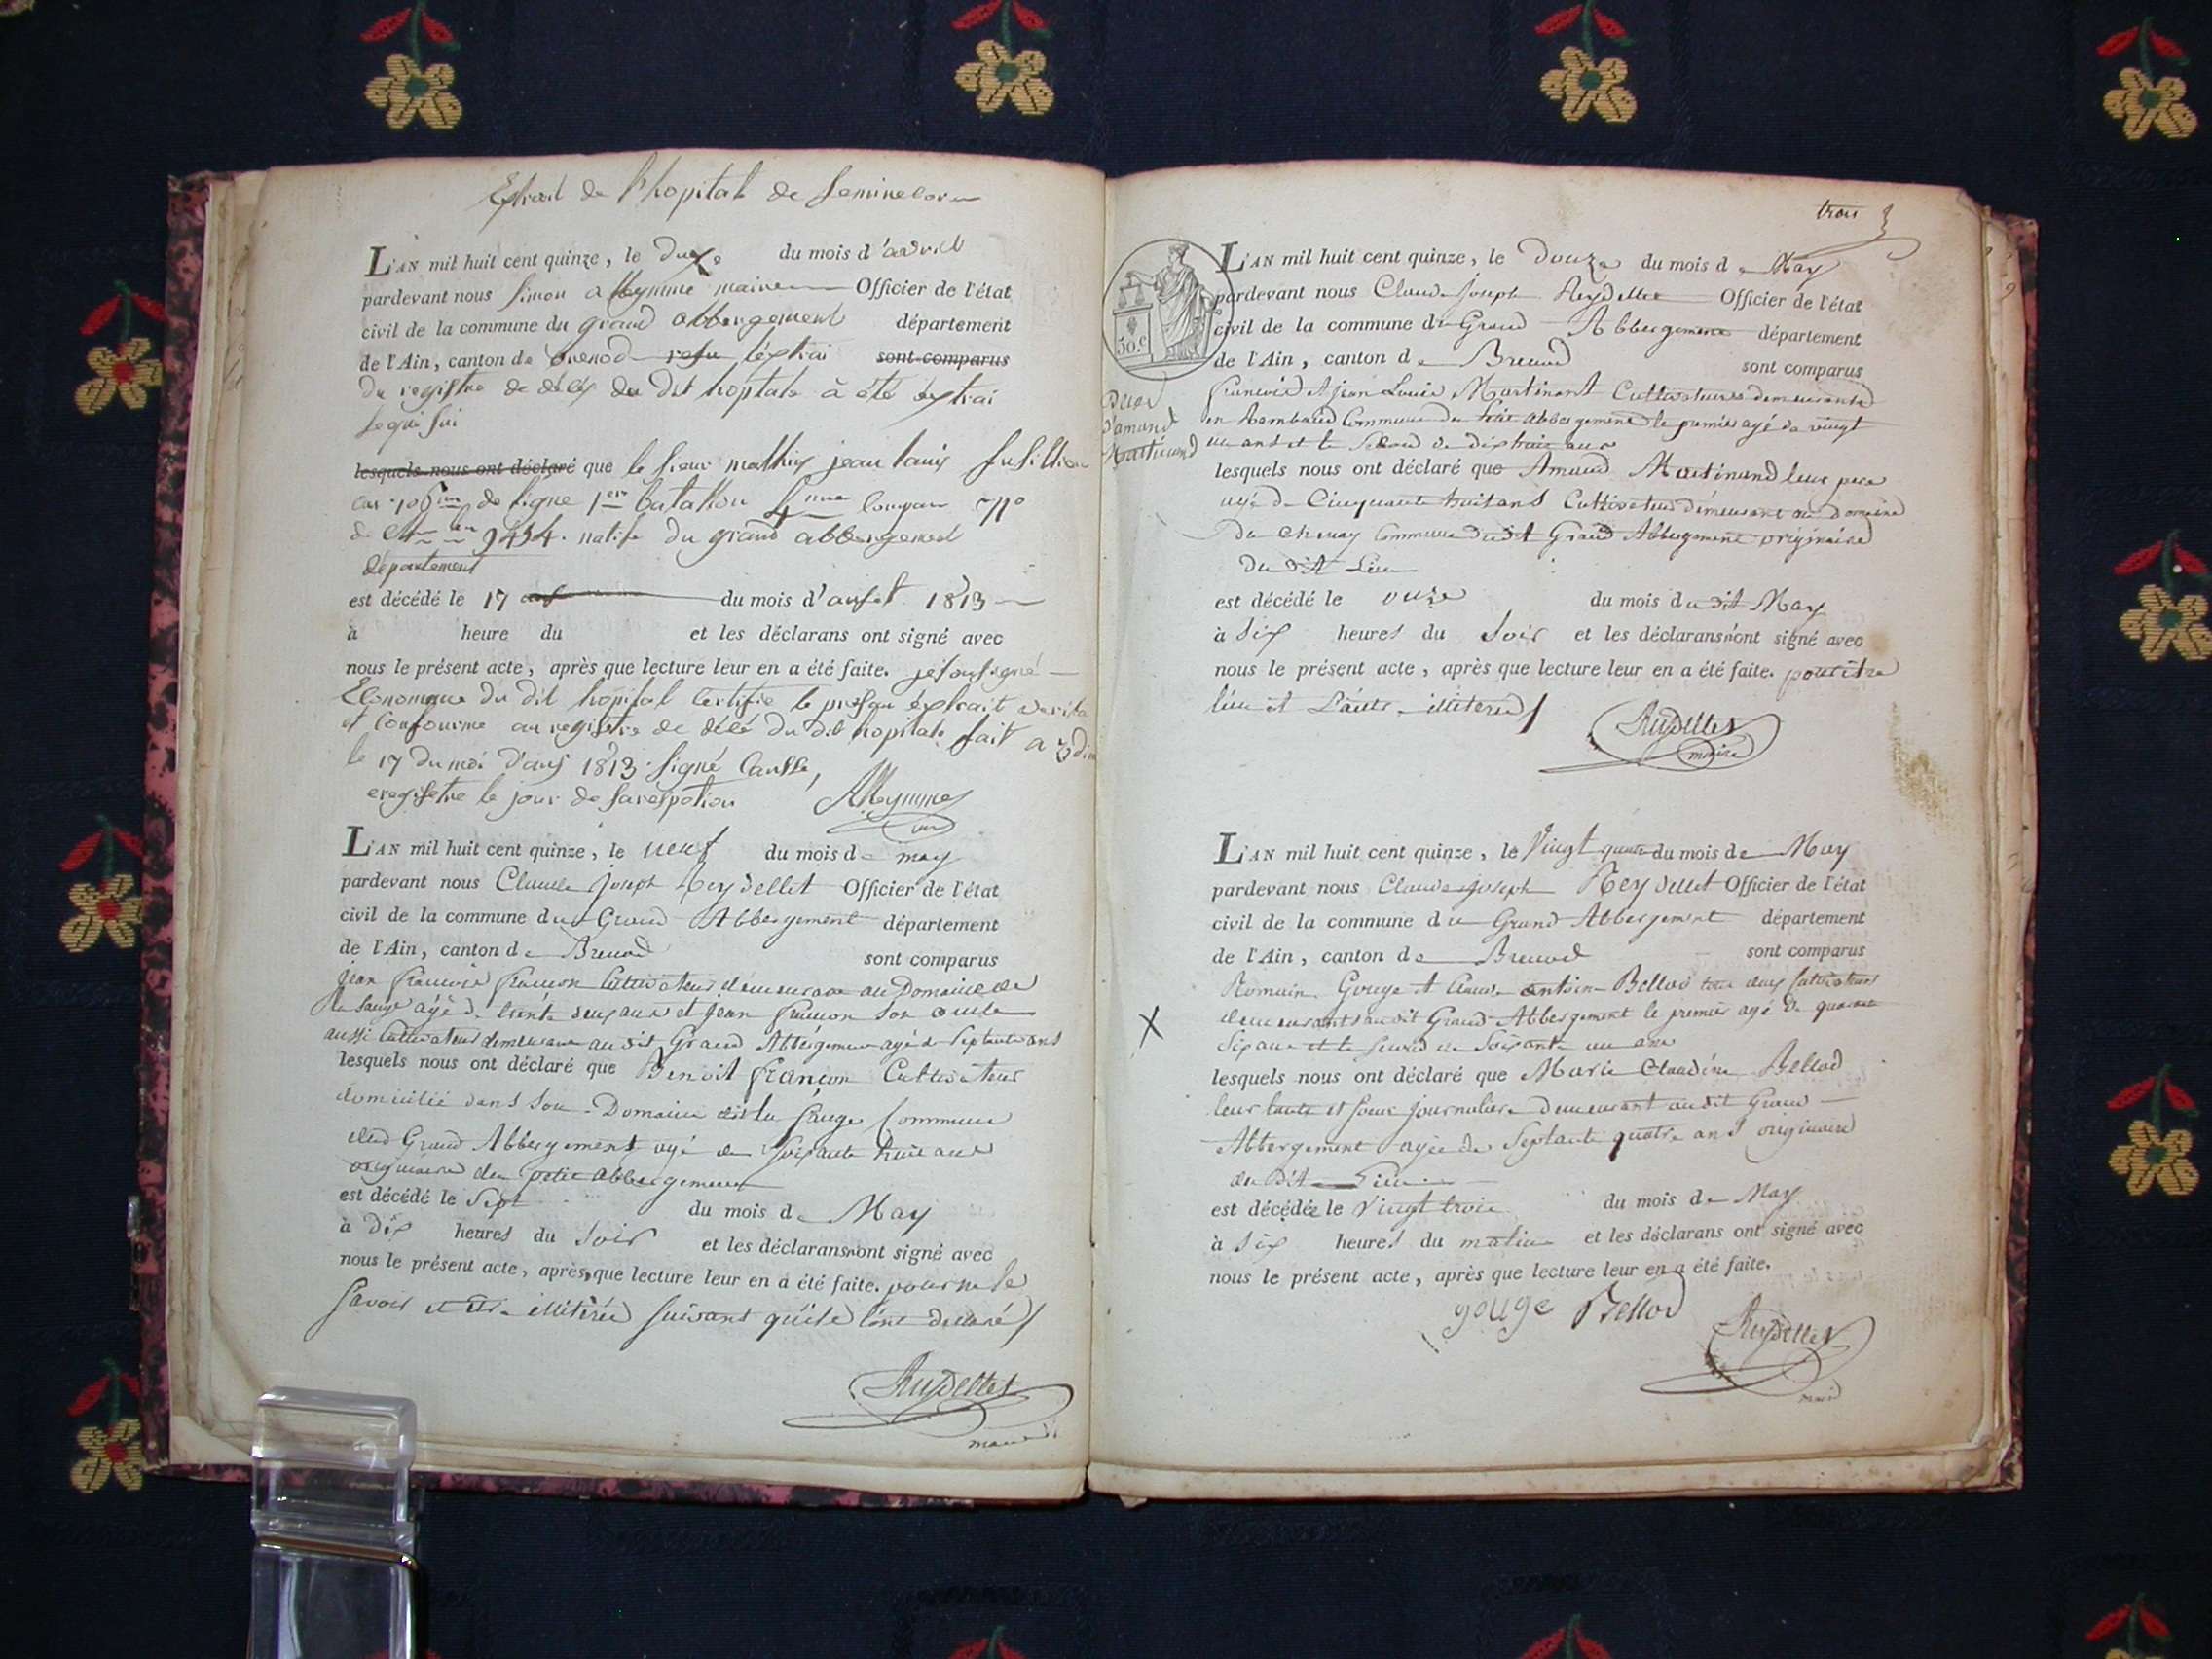 Extrait de l'hopital de
L'AN mil huit cent quinze, le du mois d'avril
pardevant nous simon alleymme maire Officier de l'état
civil de la commune du grand abbergement département
de l'Ain, canton de Brenod sont comparus
du registre de décès du dit hopitale à été extrai
se qui sui
lesquels nous ont déclaré que le sieur mathieu jean louis fusillier
au 106 de ligne 1er bataillon 4 compa n°
de 9454. natife du grand abbergement
département
est décédé le 17 du mois d' 1813
à heure du et les déclarans ont signé avec
nous le présent acte, après que lecture leur en a été faite. je sousigné
Econome du dit hopital certifie le présan extrait
et conforme au registre de décé du dit hopitale fait a
le 17 du moi 1813 signé
eregistre le jour de sa resption Alleymme
L'AN mil huit cent quinze, le neuf du mois de may
pardevant nous Claude Joseph Reydellet Officier de l'état
civil de la commune du Grand Abbergement département
de l'Ain, canton de Brenod
sont comparus
jean francois françon cultivateur demeurant au Domaine de
la sauge agé de trente deux ans et jean françon son oncle
aussi cultivateur demeurant au dit Grand Abbergement agé de septante ans
lesquels nous ont déclaré que Benoit françon Cultivateur
domicilié dans son Domaine de la Commune
du Grand Abbergement agé de soixante huit ans
originaire du petit abbergement
est décédé le sept du mois de May
à dix heures du soir et les déclarans n'ont signé avec
nous le présent acte, après que lecture leur en a été faite. pour ne le
savoir et être illitérés suivant qu'ils l'ont déclaré
Reydellet
maire
trois 3
L'AN mil huit cent quinze, le douze du mois de May
pardevant nous Claude Joseph Reydellet Officier de l'état
civil de la commune du Grand Abbergement département
de l'Ain, canton de Brenod
sont comparus
50.c
Deces
d'amand
Martinand
francois et jean Louis Martinant Cultivateurs demeurants
en Commune du petit abbergement le premier agé de vingt
un ans et le second de dix huit ans
lesquels nous ont déclaré que Amand Martinand leur pere
agé de Cinquante huit ans Cultivateur demeurant au domaine
du chenay Commune du dit Grand Abbergement originaire
du dit Lieu
est décédé le onze du mois du dit May
à six heures du soir et les déclarans n'ont signé avec
nous le présent acte, après que lecture leur en a été faite. pour être
l'un et l'autre illiterés
Reydellet
maire
L'AN mil huit cent quinze, le Vingt quatre du mois de May
pardevant nous Claude Joseph Reydellet Officier de l'état
civil de la commune du Grand Abbergement département
de l'Ain, canton de Brenod sont comparus
Romain Gouge et antoine Bellod tous deux Cultivateurs
demeurants au dit Grand Abbergement le premier agé de quarante
X
six ans et le second de soixante un ans
lesquels nous ont déclaré que Marie Claudine Bellod
leur tante et soeur journaliere demeurant au dit Grand
Abbergement agée de septante quatre ans originaire
du dit Lieu
est décédée le vingt trois du mois de May
à six heures du matin et les déclarans ont signé avec
nous le présent acte, après que lecture leur en a été faite.
gouge Bellod
Reydellet
maire